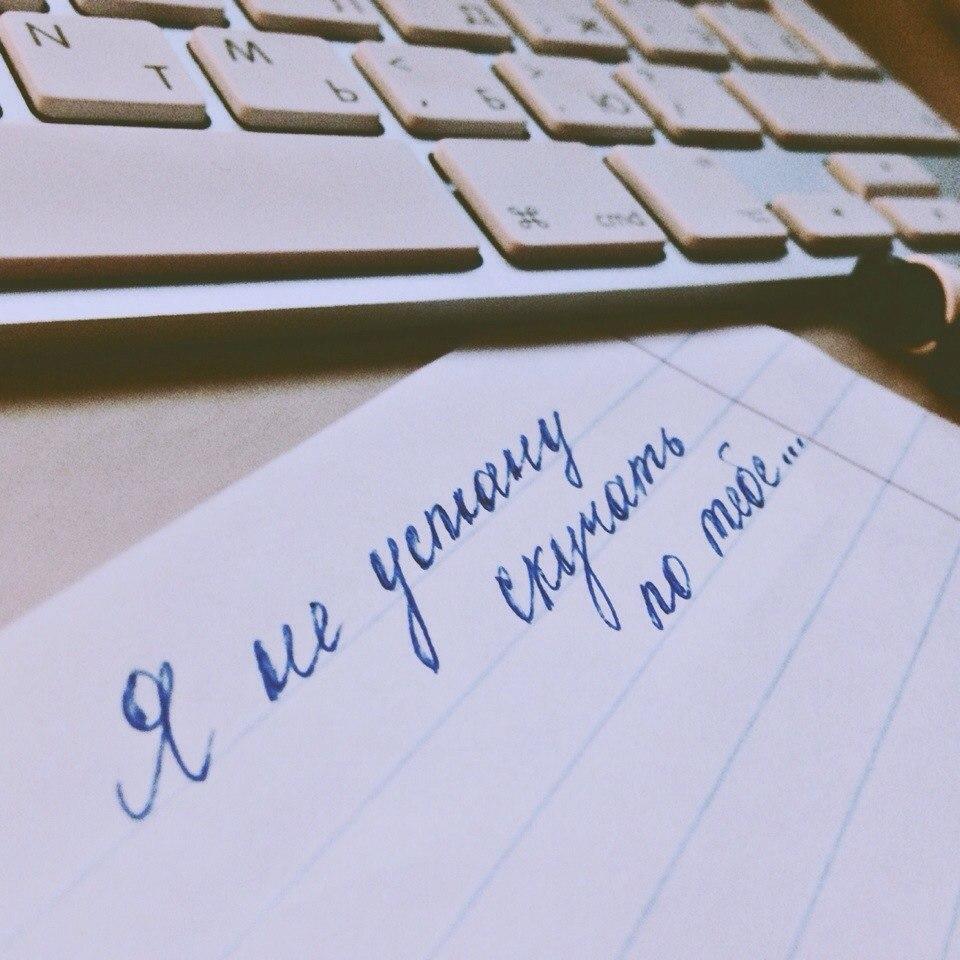 N M <
Т Ь , Б . Ю
⌘ cmd
Я не устану
скучать
по тебе...